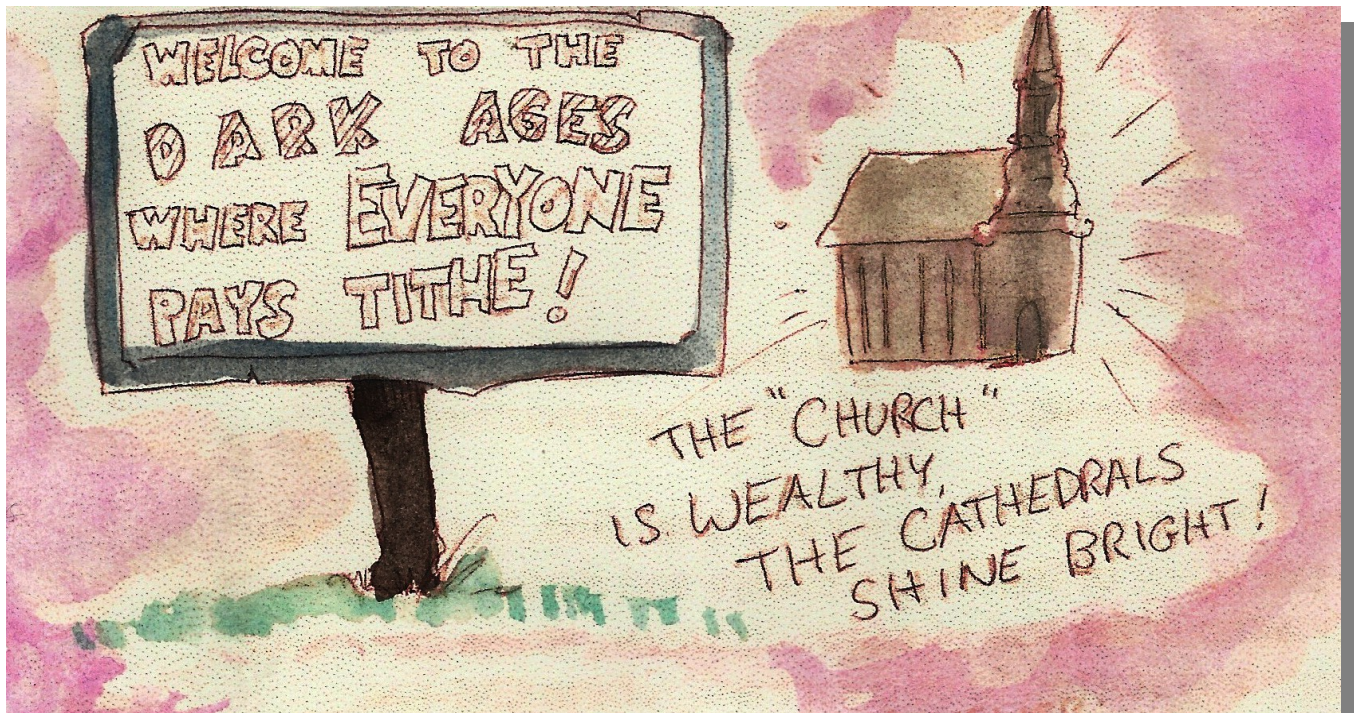 WELCOME TO THE
DARK AGES
WHERE EVERYONE
PAYS TITHE!
THE "CHURCH"
IS WEALTHY,
THE CATHEDRALS
SHINE BRIGHT!